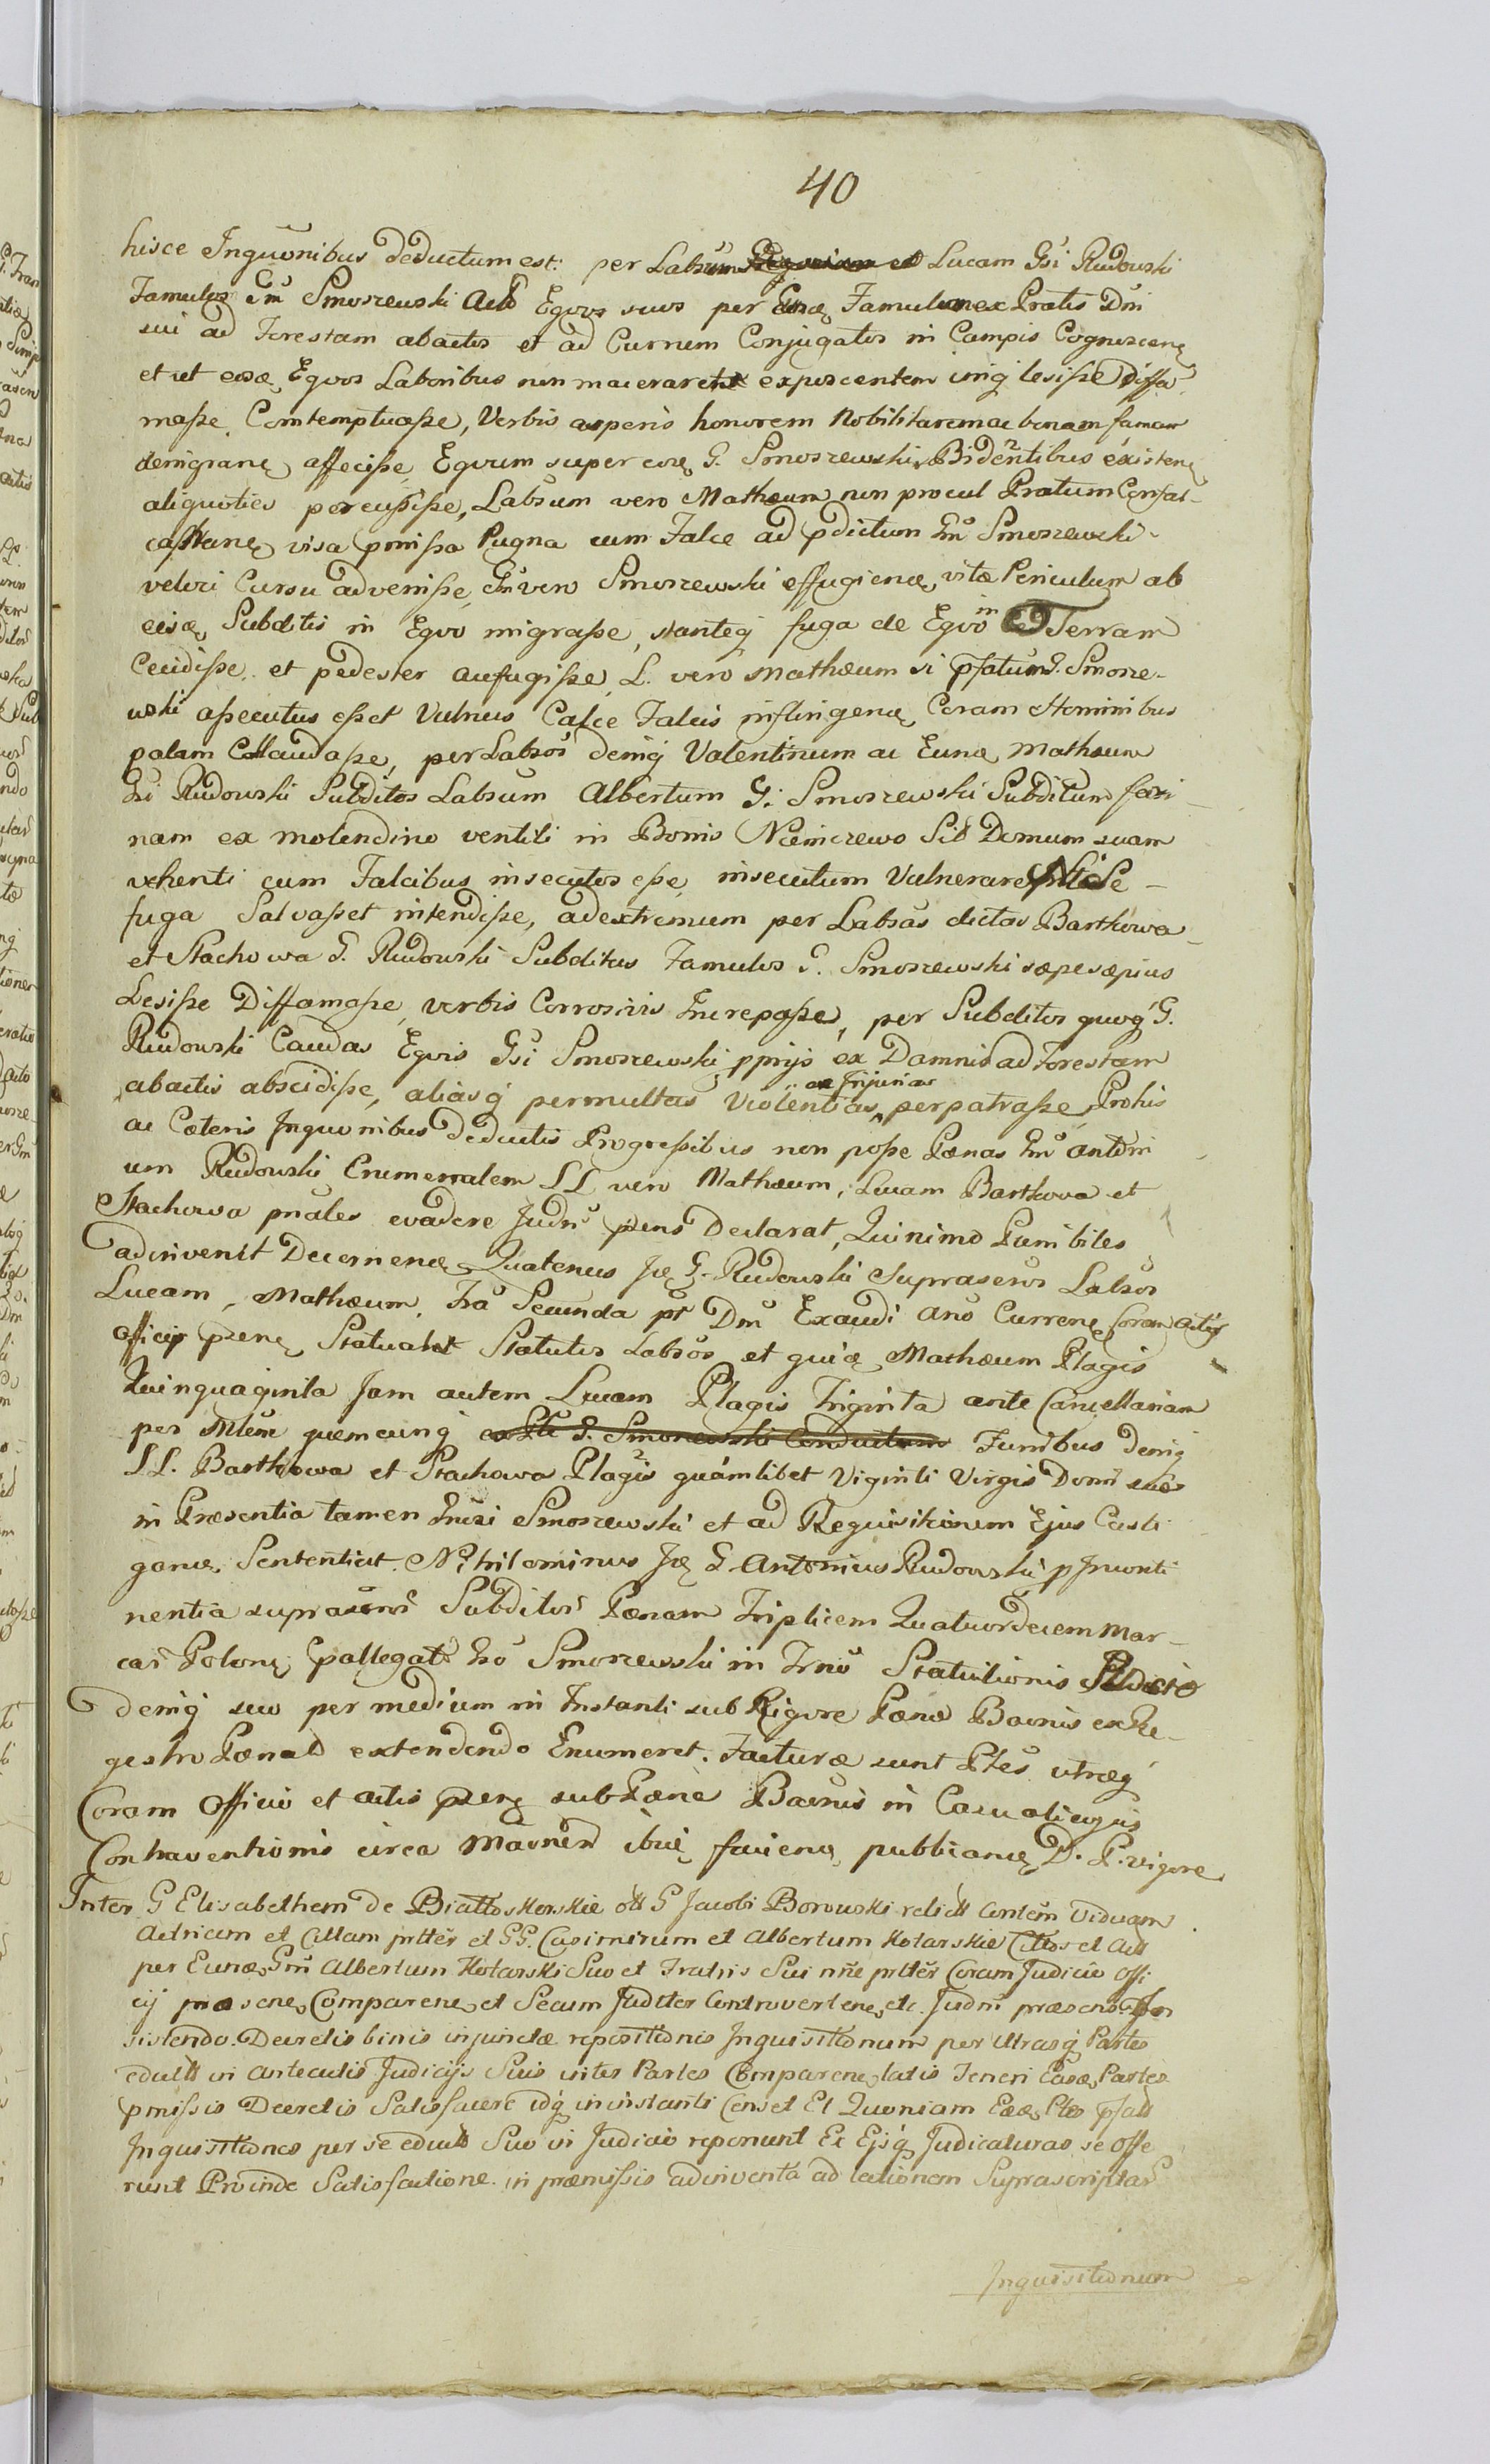 40
hisce Inquōnibus deductum est: per Labsum Gregorium et Lucam Gsi Rudowski
Famulos Gm̄ Smoszewski Actō Equos suos per Eunq Famulum ex Pratis Dm̄
sui ad Forestam abactos et ad Currum Conjugatos in Campis Cognoscenq
et ut eosq Equos Laboribus non macerarent exposcentem iniq lesiſse diffa
maſse, Contemptuaſse, Verbis asperis honorem Nobilitarem ac bonam famam
denigranq affeciſse, Equum super eoq G. Smoszewski Bidentibus existenq
aliquoties percuſsiſse, Labsum vero Mathæum non procul Pratum Confal-
caſtranq visa pmiſsa Pugna cum Falce ad pdictum Gm̄ Smoszewski
veloci Cursu adveniſse, Gm̄ vero Smoszewski effugienq vitæ Periculum ab
eisq Subditis in Equo migraſse, stanteq fuga de Equo in Terram
Cecidiſse et pedester aufugiſse, L. vero Mathæum si pſatum G. Smosze-
wski aſsecutus eſset Vulnus Calce Falcis infligenq Coram Hominibus
palam Collaudaſse, per Labsos deniq Valentinum ac Eunq Mathæum
Gsi Rudowski Subditos Labsum Albertum G: Smoszewski Subditum fari
nam ex molendino ventili in Bonis Niemczewo Sib Domum suam
vehenti cum Falcibus insecutos eſse, insecutum Vulnerare Ni Se
fuga Salvaſset intendiſse, ad extremum per Labsas dictas Bartkowa
et Stachowa G. Rudowski Subditas Famulos G. Smoszewski sæpe sæpius
Lesiſse Diffamaſse, verbis Corrosivis Increpaſse, per Subditos quoq G.
Rudowski Caudas Equis Gsi Smoszewski pprijs ex Damnis ad Forestam
abactis abscidiſse, aliasq permultas Violentias ac Injurias perpatraſse, Pro his
ac Cæteris Inquonibus deductis Progreſsibus non poſse Pænas Gm̄ Antōni
um Rudowski Enumeralem LL vero Mathæum, Lucam Bartkowa et
Stachowa pnales evadere Judm̄ pens Declarat, Quinimo Punibiles
adinvenit Decernenq Quatenus Jq G. Rudowski Suprascros Labsos
Lucam, Mathæum, Fra Secunda pt Dm̄ Exaudi Ano Currenq Coram Actis
Officij penq Statuat Statutos Labsos et quiq Mathæum Plagis
Quinquaginta Jam autem Lucam Plagis Triginta ante Cancellariam
per Mlem quemcunq ex Pte G. Smoszewski Conductum Funibus deniq
LL. Bartkowa et Stachowa Plagis quamlibet Viginti Virgis Domi suæ
in Præsentia tamen Gnrsi Smoszewski et ad Requisitionem Ejus Casti
ganq Sententiat. Nihilominus Jq G. Antonius Rudowski p Inconti
nentia suprascrōr Subditor Pænam Triplicem Quatuordecem Mar-
cas Polonq pallegato Gso Smoszewski in Trno Statuitionis Pdicto
deniq seu per medium in Instanti sub Rigore Pænæ Bannis ex Re-
gestro Pænali extendendo Enumeret. Facturæ sunt Ptes utræq
Coram Officio et actis penq sub Pæna Bannis in Casu alicujus
Contraventionis circa Manen ibiq facienq publicanq D. P. vigore
Inter G Elisabethem de Białłoskorskie olt G Jacobi Borowski relict Consēm Viduam
Actricem et Cittam prttēr et GG. Casimirum et Albertum Kotarskie Cittos et Act
per Eunq Gm̄ Albertum Kotarski Suo et Fratris Sui nn̄e prttēr Coram Judicio Offi
cij præsenq Comparenq et Secum Judtter Controvertenq etc. Judm̄ præsens In
sistendo. Decretis binis injunctæ repositionis Inquisitionum per Utrasq Partes
eduitt in Anteactis Judicijs Suis inter Partes Comparenq latis Teneri Easq Partes
pmiſsis Decretis Satisfacere idq in instanti Censet Et Quoniam Eæq Ptes pſatt
Inquisitiones per se eduitt Suo in Judicio reponunt Ex Ejsq Judicaturas se offe
runt Proinde Satisfactione in præmiſsis adinventa ad lectionem Suprascriptar
Inquisitionum